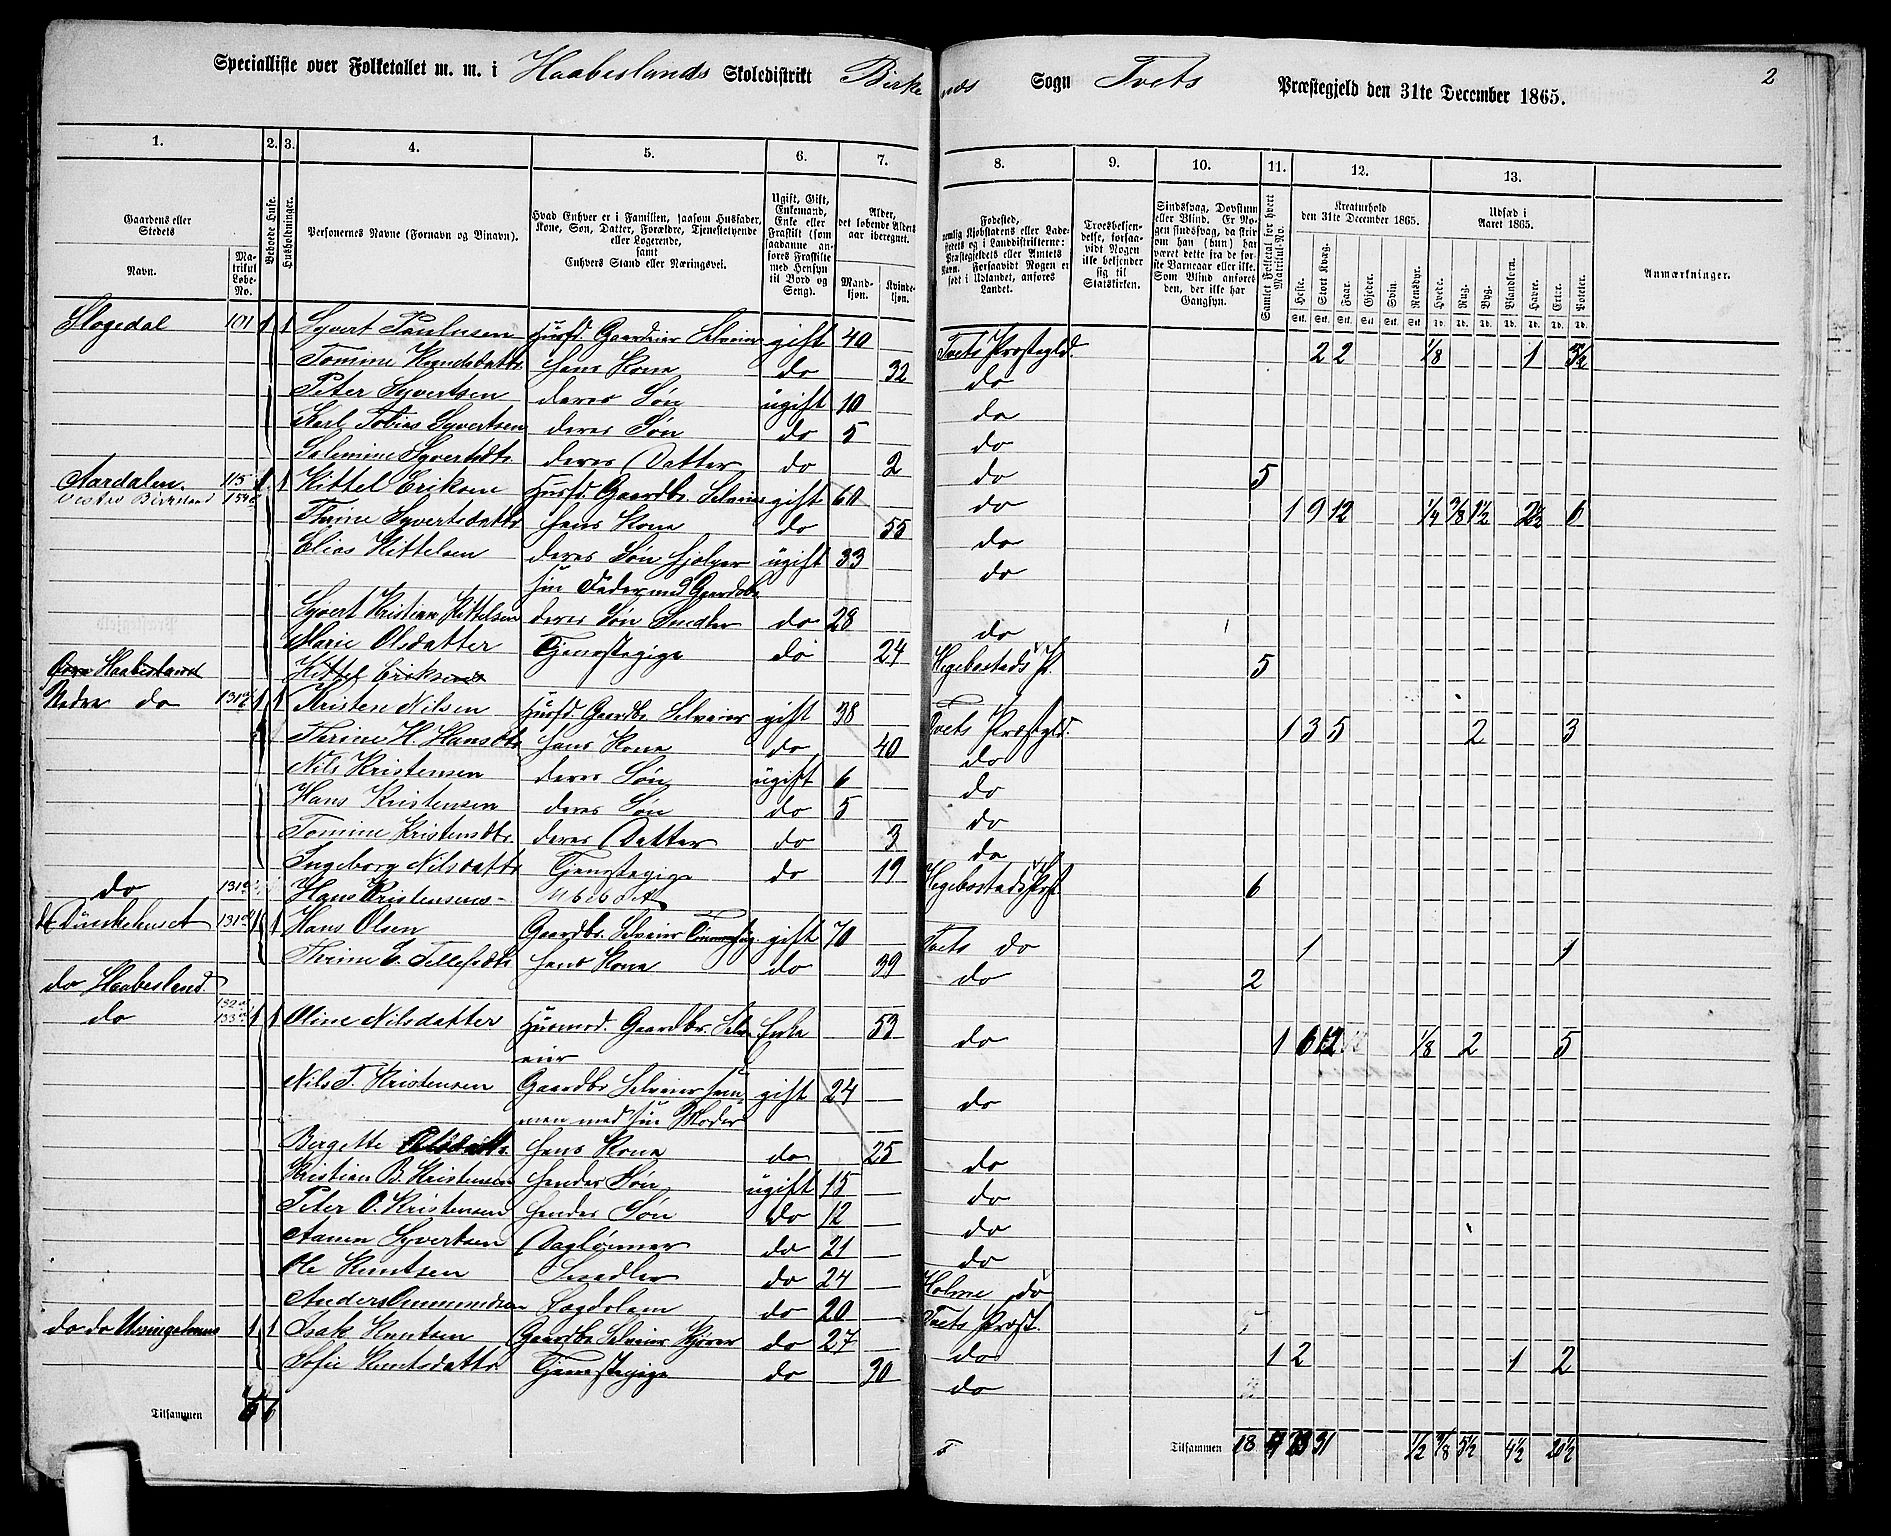 Specialliste over Folketallet m. m. i Haabeslands Skoledistrikt Birke
nds Sogn Tvets Præstegjeld den 31te December 1865. 2
1. 2. 3. 4. 5. 6. 7. 8. 9. 10. 11. 12. 13.
Gaardens eller Stedets
Navn.
Matrikul Løbe-No.
Beboede Huse.
Husholdninger.
Personernes Navne (Fornavn og Tilnavn).
Hvad Enhver er i Familien, saasom Husfader, Kone, Søn, Datter, Forældre, Tjenestetyende eller Logerende, samt Enhvers Stand eller Næringsvei.
Ugift, Gift, Enkemand, Enke eller Fraskilt (som saadanne anføres Fraskilte med Hensyn til Bord og Seng).
Alder, det løbende Alders aar iberegnet.
Mandkjøn. Kvindekjøn.
Fødested,
nemlig Kjøbstadens eller Ladestedets og i Landdistrikterne: Præstegjeldets eller Amtets Navn. Forsaavidt Nogen er født i Udlandet, anføres Landet.
Troesbekjendelse, forsaavidt Nogen ikke bekjender sig til Statskirken.
Sindssvag, Døvstum eller Blind. Er Nogen sindssvag, da skrives om han (hun) har været dette fra de første Barneaar eller ikke. Som Blind anføres den, der ikke har Gangsyn.
Samlet Folketal for hvert Matrikul-No.
Kreaturhold den 31te December 1865.
Heste. Stort Kvæg. Faar. Gjeder. Svin. Rensdyr.
Udsæd i Aaret 1865.
Hvede. Rug. Byg. Blandkorn. Havre. Erter. Poteter.
Anmærkninger.
Slogedal 101 1 1 Syvert Paulusen Husfd. Gaardeier Selveier gift 40 Tvets Præstegld. 2 2 1/8 1 3½
Tomine Knudsdattr hans Kone do 32 do
Peter Syvertsen deres Søn ugift 10 do
Karl Tobias Syvertsen deres Søn do 5 do
Salemine Syvertsdtr deres Datter do 2 do 5
Aardalen 115 1 1 Kittel Eriksen Husfd. Gaardbr. Selveier gift 60 do 1 9 12 1/4 3/8 1½ 2½ 6
Vestre Birkeland 154
Thrine Syvertsdattr hans Kone do 55 do
Elias Kittelsen deres Søn hjelper ugift 33 do
sin Fader med Gaardsbr
Syvert Kristian Kittelsen deres Søn Snedker do 28 do
Marie Olsdatter Tjenestepige do 24 Hegebostads P. 5
Øvre Haabesland Kittel Eriksens
Nedre do 131 1 1 Kristen Nilsen Husfd. Gaardbr. Selveier gift 38 Tvets Præstgld. 1 3 5 2 3
Thrine H. Hansdtr hans Kone do 40 do
Nils Kristensen deres Søn ugift 6 do
Hans Kristensen deres Søn do 5 do
Tomine Kristensdtr. deres Datter do 3 do
Ingeborg Nilsdattr Tjenestepige do 19 Hegebostads Præst 6
do 131 Hans Kristensens - Ubebod
do 131 1 1 Hans Olsen Gaardbr. Selveier gift 70 Tvets do 1 1
Thrine E. Tellefsdtr hans Kone do 39 do 2
do Haabesland
132
do 133 1 1 Oline Nilsdatter Husmod. Gaardbr. Selv- Enke 53 do 1 6 12 1/8 2 5
eier
Nils T. Kristensen Gaardbr Selveier sam gift 24 do
men med sin Moder
Bergette Olsdattr. hans Kone do 25 do
Kristian B. Kristensen hendes Søn ugift 15 do
Peter O. Kristensen hendes Søn do 12 do
Aanen Syvertsen Daglønner do 21 do
Ole Knutsen Snedker do 24 Holme do
Anders Ommundsen Lægdslem do 20 Tvets Præst.
do do 1 1 Isak Knutsen Gaardbr Selveier do 27 do 1 2 1 2
Sofie Knutsdattr Tjenestepige do 30 do
Tilsammen 6 6
Tilsammen 18 31 1/2 3/8 5½ 4½ 20½